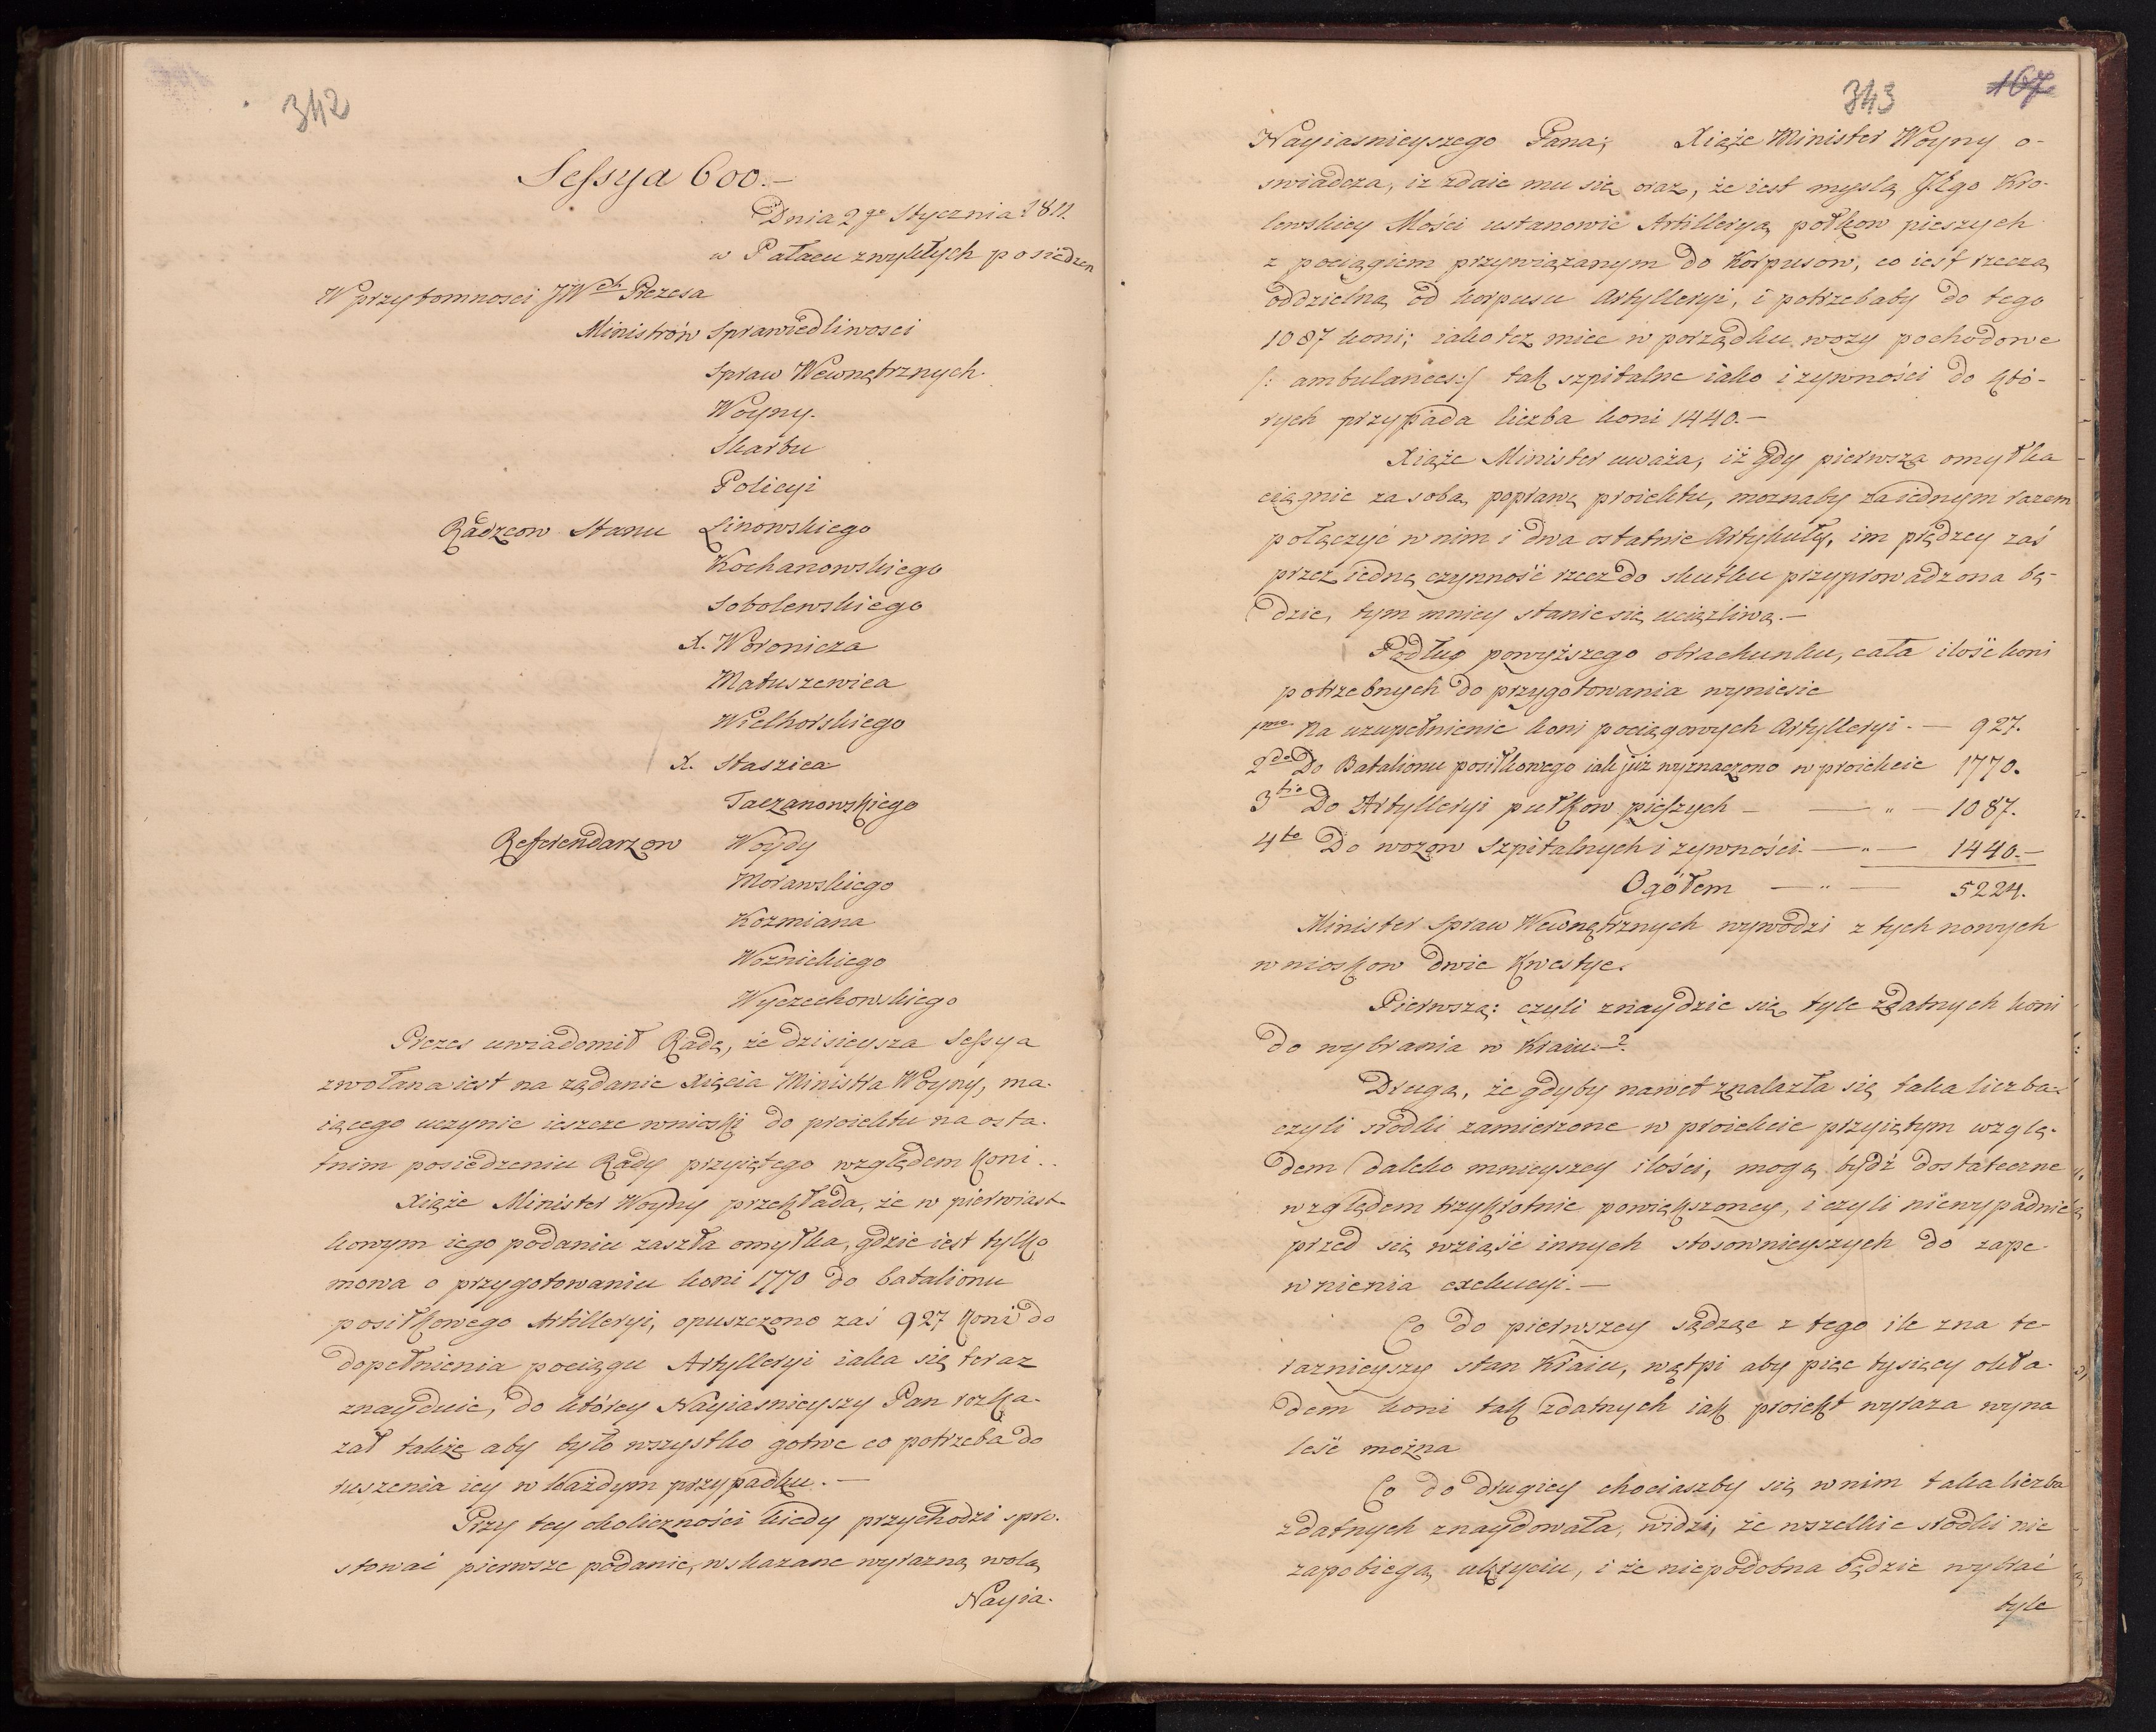 342
Sessya 600.—
Dnia 2go Stycznia 1811.
w Pałacu zwykłych posiedzen
W przytomnosci JWch Prezesa
Ministrów Sprawiedliwosci
Spraw Wewnętrznych.
Woyny.
Skarbu
Policyi
Radzcow Stanu Linowskiego
Kochanowskiego
Sobolewskiego
X. Woronicza
Matuszewica
Wielhorskiego
X. Staszica
Taczanowskiego
Referendarzow Woydy
Morawskiego
Kozmiana
Woznickiego
Wyczechowskiego
Prezes uwiadomił Radę, że dzisieysza Sessya
zwołana iest na ządanie Xięcia Ministra Woyny, ma-
iącego uczynic ieszcze wnioski do proiektu na osta-
tnim posiedzeniu Rady przyiętego względem koni..
Xiąże Minister Woyny przekłada, że w pierwiast-
kowym iego podaniu zaszła omyłka, gdzie iest tylko
mowa o przygotowaniu koni 1770 do batalionu
posiłkowego Artilleryi, opuszczono zaś 927 koni do
dopełnienia pociągu Artylleryi iaka się teraz
znayduie, do którey Nayiasnieyszy Pan rozka-
zał także aby było wszystko gotwe co potrzeba do
ruszenia iey w każdym przypadku.—
Przy tey okoliczności kiedy przychodzi spro-
stować pierwsze podanie, wskazane wyrazną wolą
Nayia-
343 167
Nayiasnieyszego Pana; Xiąże Minister Woyny o-
swiadcza, iz zdaie mu się oraz, że iest myslą JEgo Kro-
lewskiey Mości ustanowic Artilleryą połkow pieszych
z pociągiem przywiązanym do Korpusow, co iest rzeczą
oddzielną od korpusu Artylleryi, i potrzebaby do tego
1087 koni; iako tez miec w porządku wozy pochodowe
/: ambulances:/ tak szpitalne iako i zywności do któ-
rych przypada liczba koni 1440.—
Xiąże Minister uważa, iż gdy pierwsza omyłka
ciągnie za sobą poprawę proiektu, moznaby za iednym razem
połączyć w nim i dwa ostatnie Artykuły, im prędzey zaś
przez iedną czynność rzecz do skutku przyprowadzona bę-
dzie, tym mniey stanie się uciązliwą.—
Podług powyższego obrachunku, cała ilość koni
potrzebnych do przygotowania wyniesie
1mo Na uzupełnienie koni pociągowych Artylleryi.— 927.
2do Do Batalionu posiłkowego iak już wyznaczono w proiekcie 1770.
3tio Do Artylleryi pułkow pieszych — — " — 1087.
4to Do wozow Szpitalnych i zywności.— " — 1440.—
Ogółem — " — 5224.
Minister Spraw Wewnętrznych wywodzi z tych nowych
wnioskow dwie Kwestye.
Pierwszą: czyli znaydzie się tyle zdatnych koni
do wybrania w Kraiu—?
Drugą, że gdyby nawet znalazła się taka liczba
czyli srodki zamierzone w proiekcie przyiętym wzglę-
dem daleko mnieyszey ilości, mogą bydź dostateczne
względem trzykrotnie powiększoney, i czyli niewypadnie
przed się wziąść innych stosownieyszych do zape-
wnienia exekucyi.—
Co do pierwszey sądząc z tego ile zna te-
raznieyszy stan Kraiu, wątpi aby pięc tysięcy okła-
dem koni tak zdatnych iak proiekt wyraza wyna
leść można
Co do drugiey chociaszby się w nim taka liczba
zdatnych znaydowała, widzi, że wszelkie srodki nie
zapobiegą ukryciu, i że niepodobna będzie wybrać
tyle